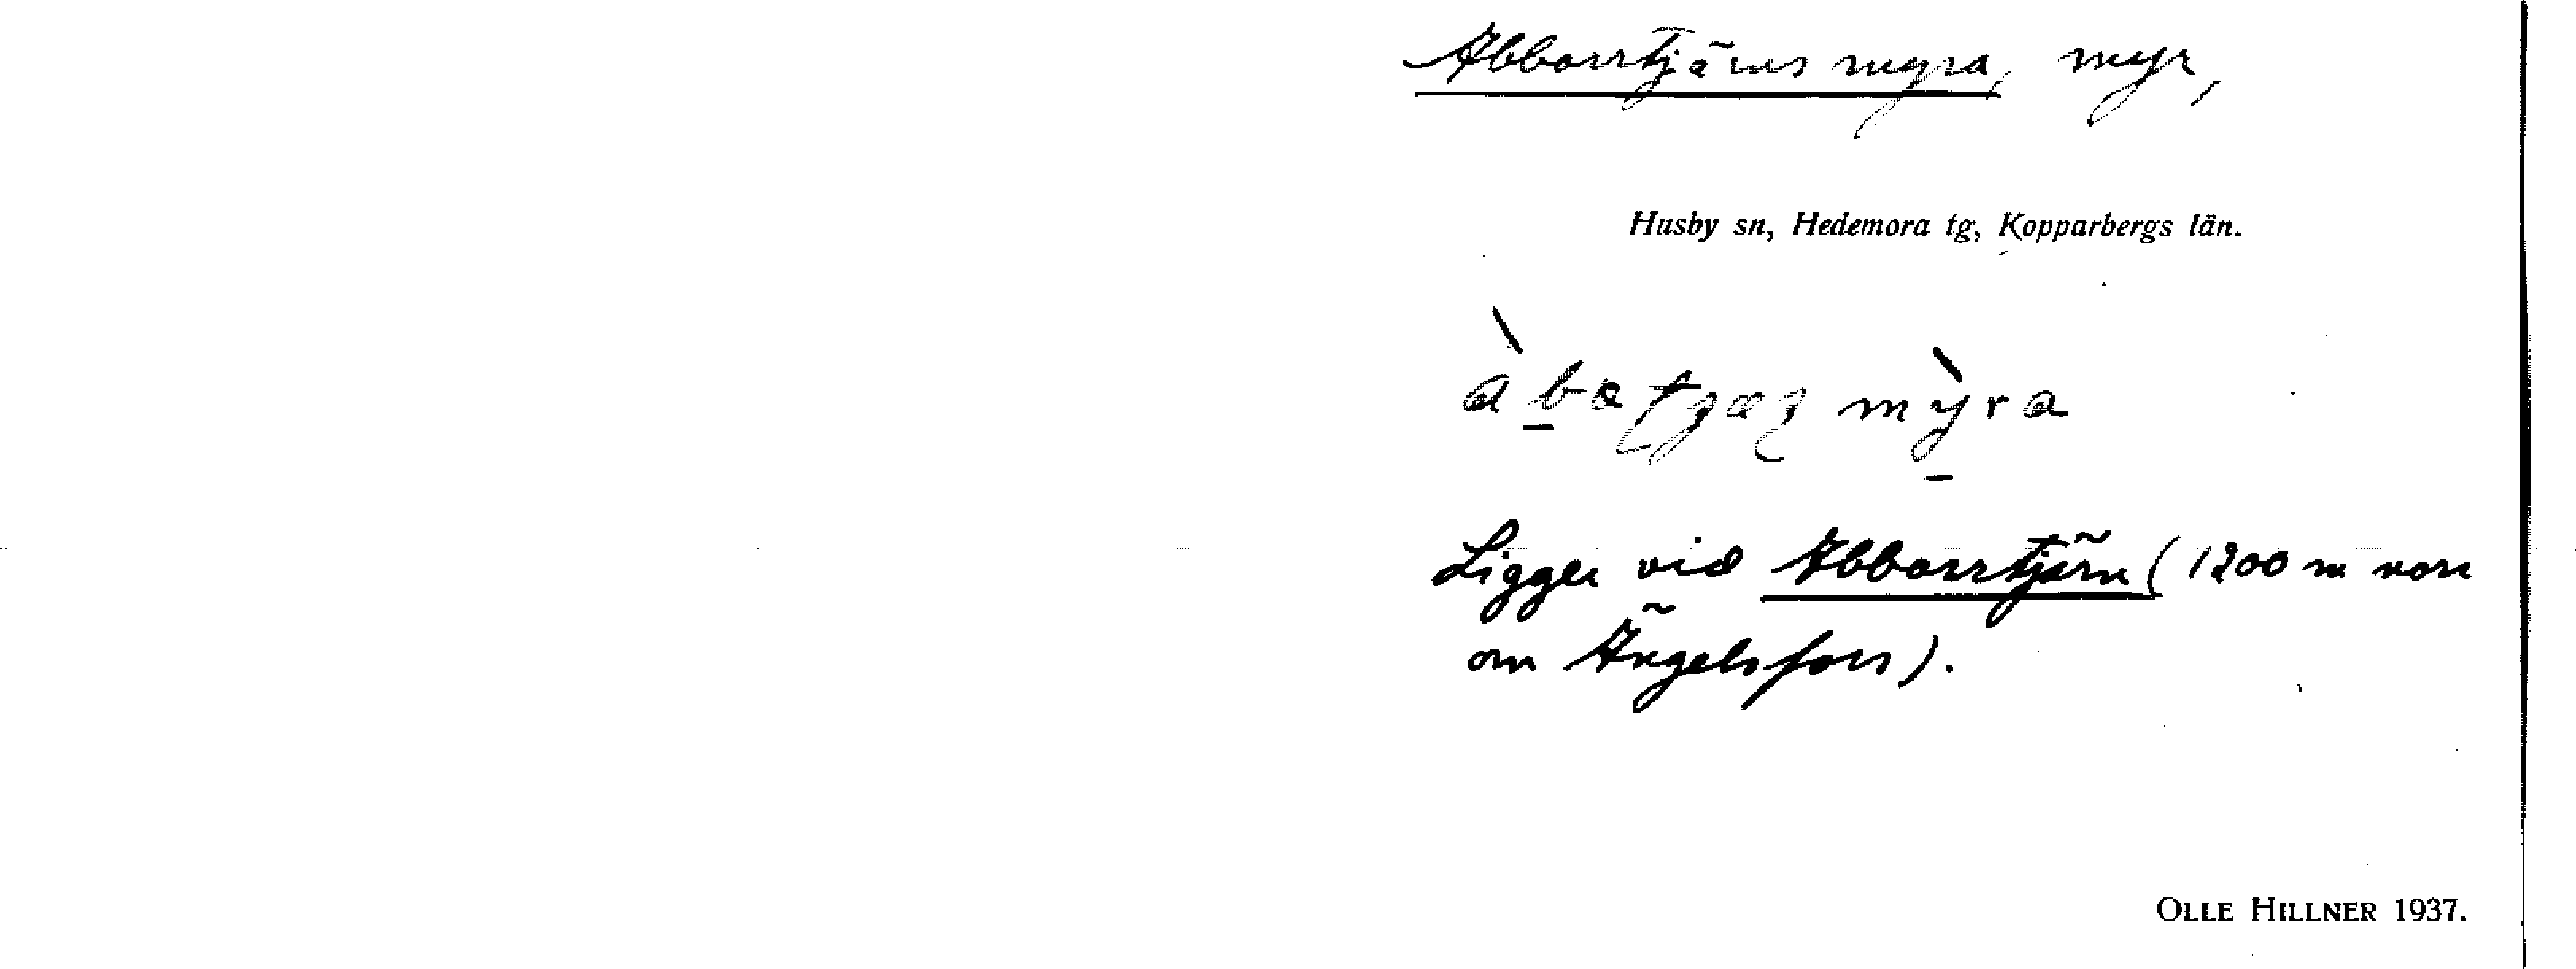 Abborrtjärns myra, myr,
Husby sn, Hedemora tg, Kopparbergs län.
Ligger vid Abborrtjärn (1200 m norr
om Ängelsfors).
OLLE HILLNER 1937.